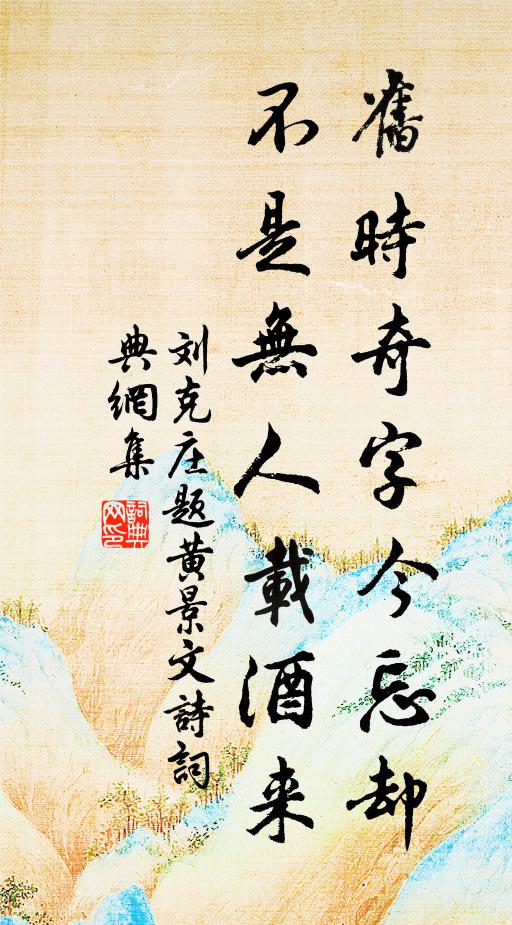 舊時奇字今忘却
不是無人載酒来
刘克庄题黄景文詩詞
典網集
詞典网印